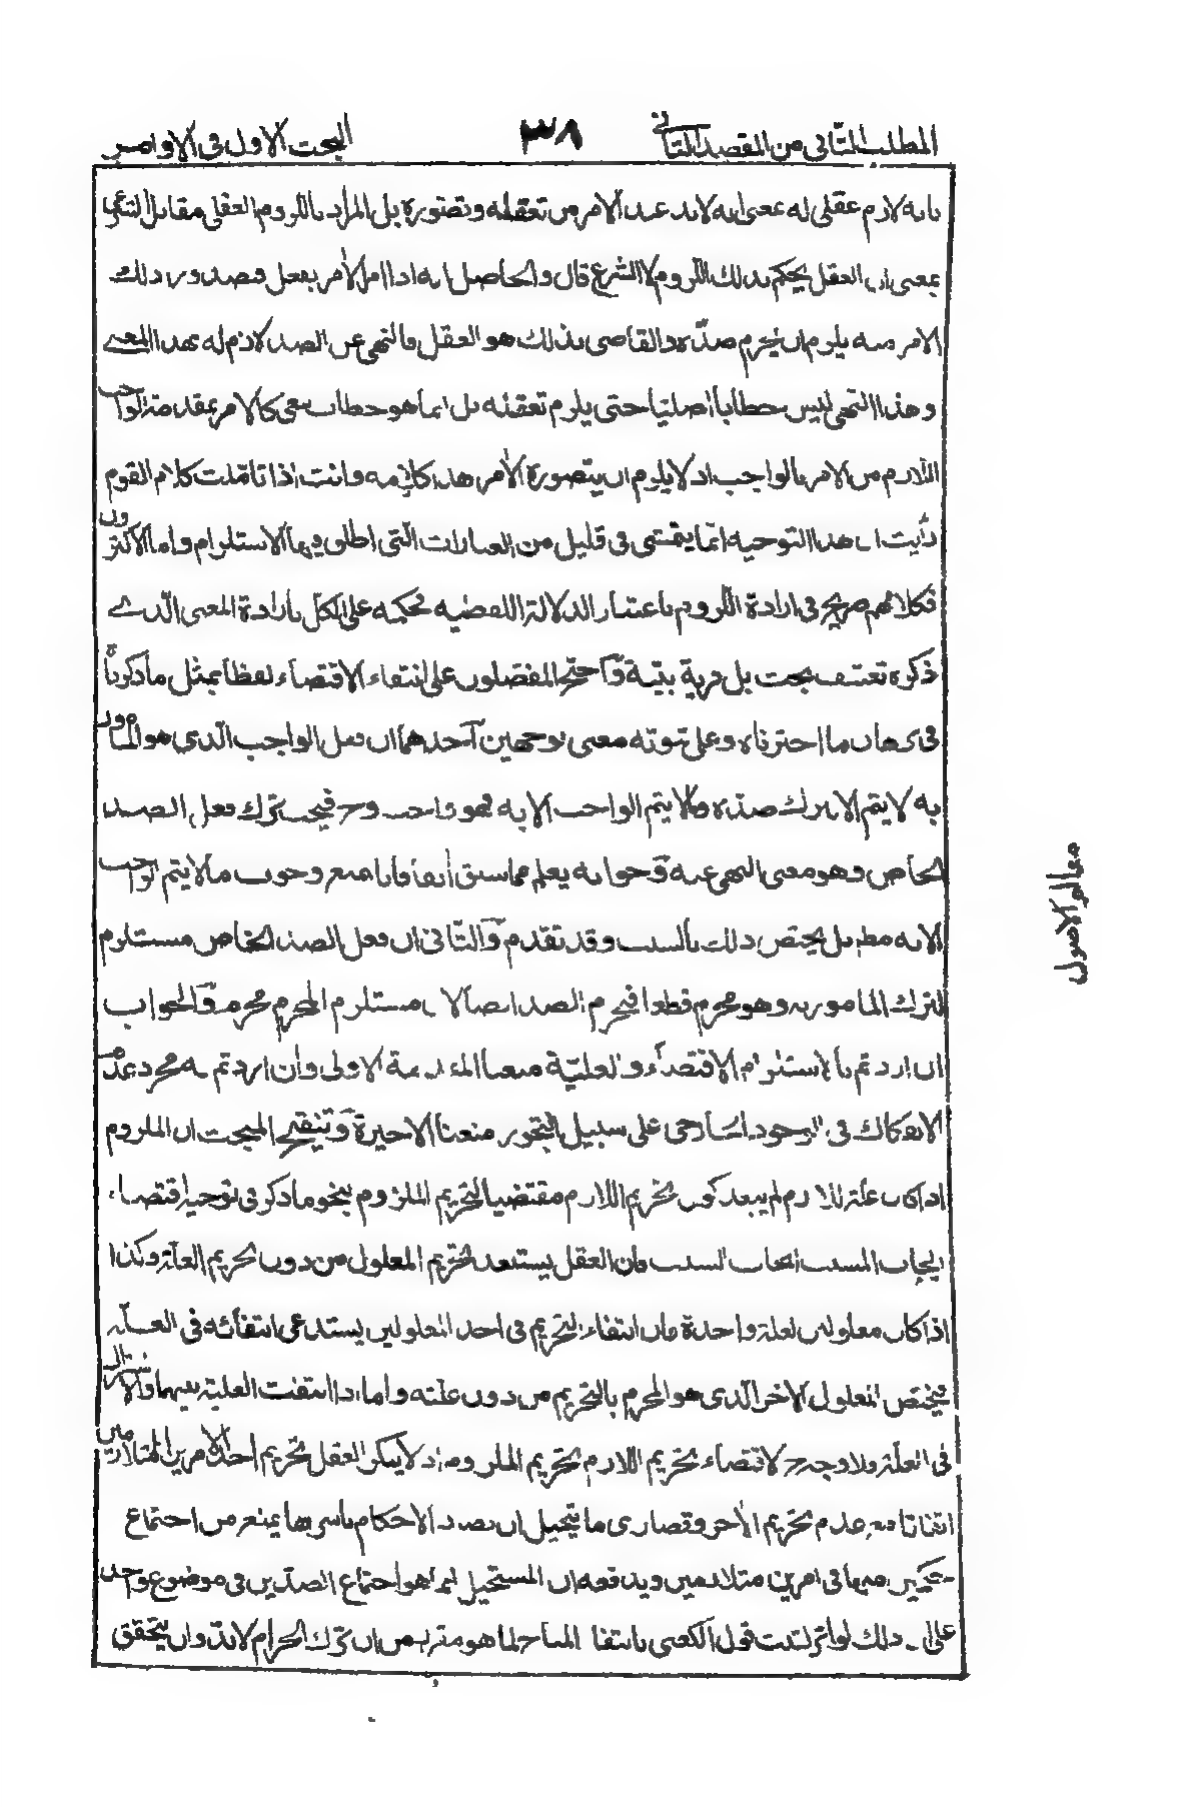 المطلب الثانى من المقصد الثانى ٣٨ البحث الاول فى الاوامر
بانه لازم عقلى له بمعنى انه لابد عند الامر من تعقله وتصوره بل المراد باللزوم العقلى مقابل الشرعى
بمعنى ان العقل يحكم بذلك اللزوم لا الشرع قال والحاصل انه اذا امر الامر بفعل فبصدور ذلك
الامر منه يلزم ان يحرم ضده والقاضى بذلك هو العقل فالنهى عن الضد لازم له بهذا المعنى
وهذا النهى ليس خطابا اصليا حتى يلزم تعقله بل انما هو خطاب تبعى كالامر بمقدمة الواجب
اللازم من الامر بالواجب اذ لا يلزم ان يتصوره الامر هذا كلامه وانت اذا تاملت كلام القوم
رأيت ان هذا التوجيه انما يتمشى فى قليل من العبارات التى اطلق فيها الاستلزام واما الاكثرون
فكلامهم صريح فى ارادة اللزوم باعتبار الدلالة اللفظيه فحكمه على الكل بارادة المعنى الذى
ذكره تعسف بحت بل فرية بينة واحتج المفصلون على انتفاء الاقتضاء لفظا بمثل ما ذكرناه
فى برهان ما اخترناه وعلى ثبوته معنى بوجهين احدهما ان فعل الواجب الذى هو المامور
به لا يتم الا بترك ضده وما لا يتم الواجب الا به فهو واجب وح فيجب ترك فعل الضد
الخاص وهو معنى النهى عنه وجوابه يعلم مما سبق انفا فانا نمنع وجوب ما لا يتم الواجب
الا به مطم بل يختص ذلك بالسبب وقد تقدم والثانى ان فعل الضد الخاص مستلزم
لترك المامور به وهو محرم قطعا فيحرم الضد ايضا لان مستلزم المحرم محرم والجواب
ان اردتم بالاستلزام الاقتضاء والعلية منعنا المقدمة الاولى وان اردتم به مجرد عدم
الانفكاك فى الوجود الخارجى على سبيل التجوز منعنا الاخيرة وتنقيح المبحث ان الملزوم
اذا كان علة للازم لم يبعد كون تحريم اللازم مقتضيا لتحريم الملزوم لنحو ما ذكر فى توجيه اقتضاء
ايجاب المسبب ايجاب السبب فان العقل يستبعد تحريم المعلول من دون تحريم العلة وكذا
اذا كانا معلولين لعلة واحدة فان انتفاء التحريم فى احد المعلولين يستدعى انتفائه فى العلة
فيختص المعلول الاخر الذى هو المحرم بالتحريم من دون علته واما اذا انتفت العلية بينهما والاشتراك
فى العلة فلا وجه ح لاقتضاء تحريم اللازم تحريم الملزوم اذ لا ينكر العقل تحريم احد الامرين المتلازمين
اتفاقا مع عدم تحريم الاخر وقصارى ما يتخيل ان تضاد الاحكام باسرها يمنع من اجتماع
حكمين منها فى امرين متلازمين ويدفعه ان المستحيل انما هو اجتماع الضدين فى موضوع واحد
على ان ذلك لو اثر لثبت قول الكعبى بانتفاء المباح لما هو مقرر من ان ترك الحرام لابد وان يتحقق
معالم الاصول